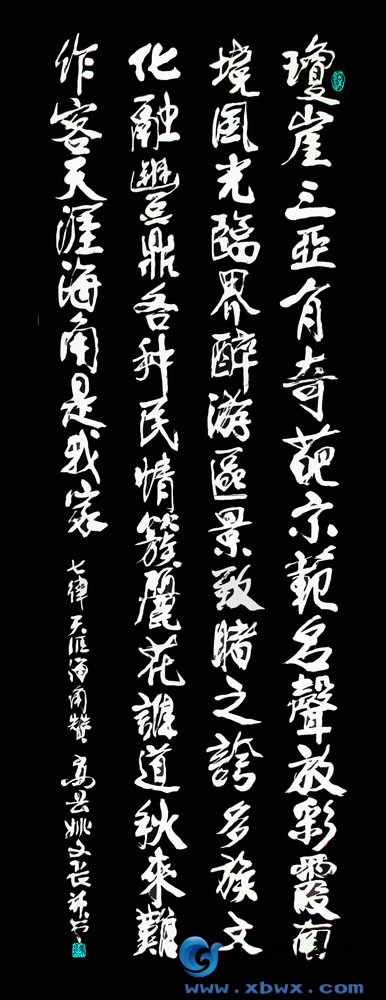 瓊崖三亞有奇葩示範名聲放彩霞南
境風光臨界醉游區景致睹之誇多族文
化融鼎各种民情簇麗花誰道秋來難
作客天涯海角是我家
七律 天涯海角贊 姚文長并书
www.xbwx.com